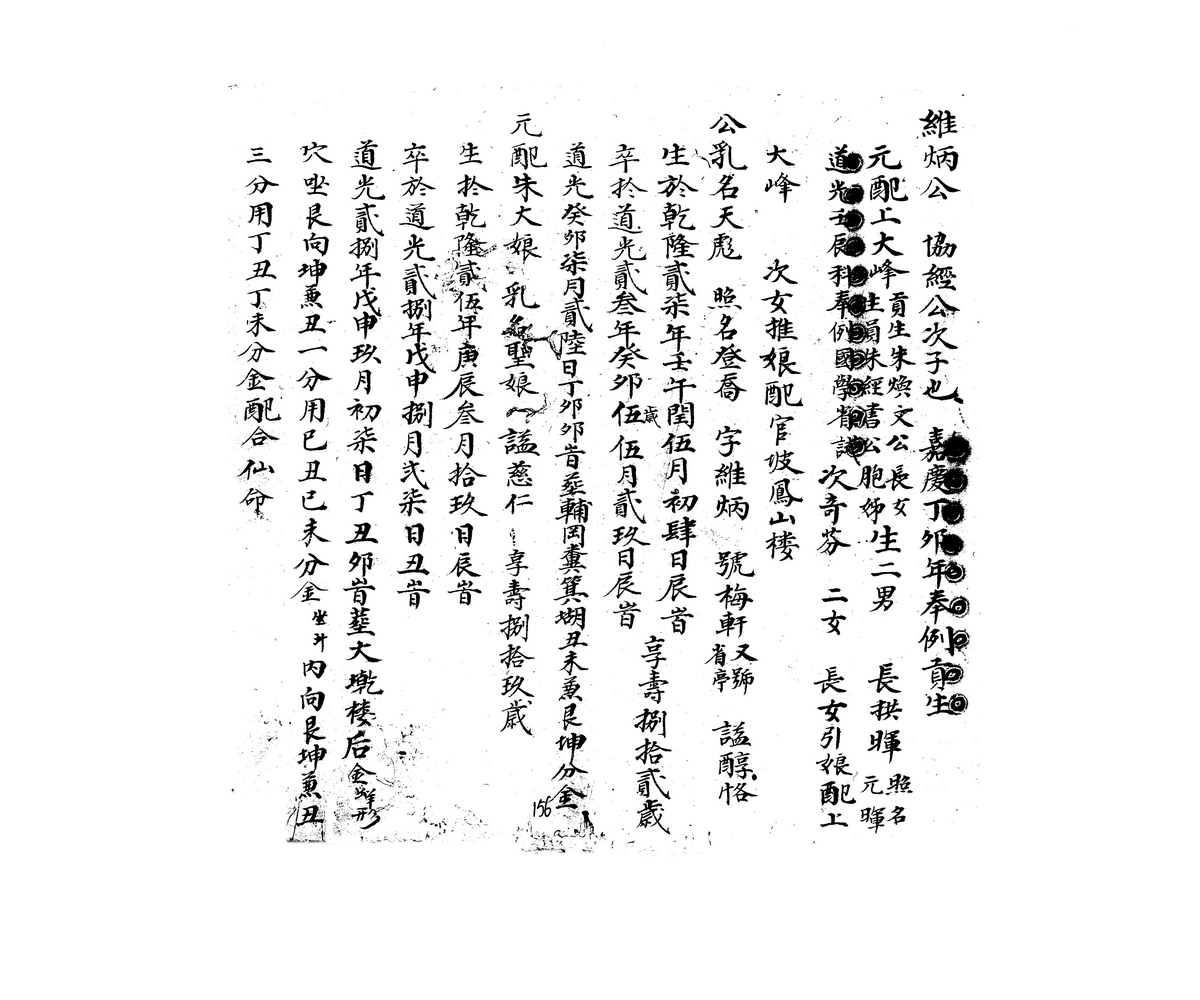 維炳公　協經公次子也　嘉慶丁卯年奉例貢生
元配上大峰貢生朱煥文公長女生員朱經書公胞姊生二男　長拱暉照名元暉
道光壬辰科奉例國學 次奇芬　二女　長女引娘配上
大峰　次女推娘配官坡鳳山楼
公乳名天彪　照名登喬　字維炳　號梅軒又號省亭　謚醇恪
生於乾隆貳柒年壬午閏伍月初肆日辰峕
享壽捌拾貳歲
卒扵道光貳叁年癸卯歲伍伍月貳玖日辰峕
道光癸卯柒月貳陸日丁卯卯峕塟輔岡糞箕湖丑未兼艮坤分金
元配朱大娘　乳名聖娘　謚慈仁　享壽捌拾玖歲
生扵乾隆貳伍年庚辰叁月拾玖日辰峕
卒於道光貳捌年戊申捌月弍柒日丑峕
道光貳捌年戊申玖月初柒日丁丑卯峕塟大墘楼后金 形
穴坐艮向坤兼丑一分用巳丑巳未分金坐升內向艮坤兼丑
三分用丁丑丁未分金配合仙命
156